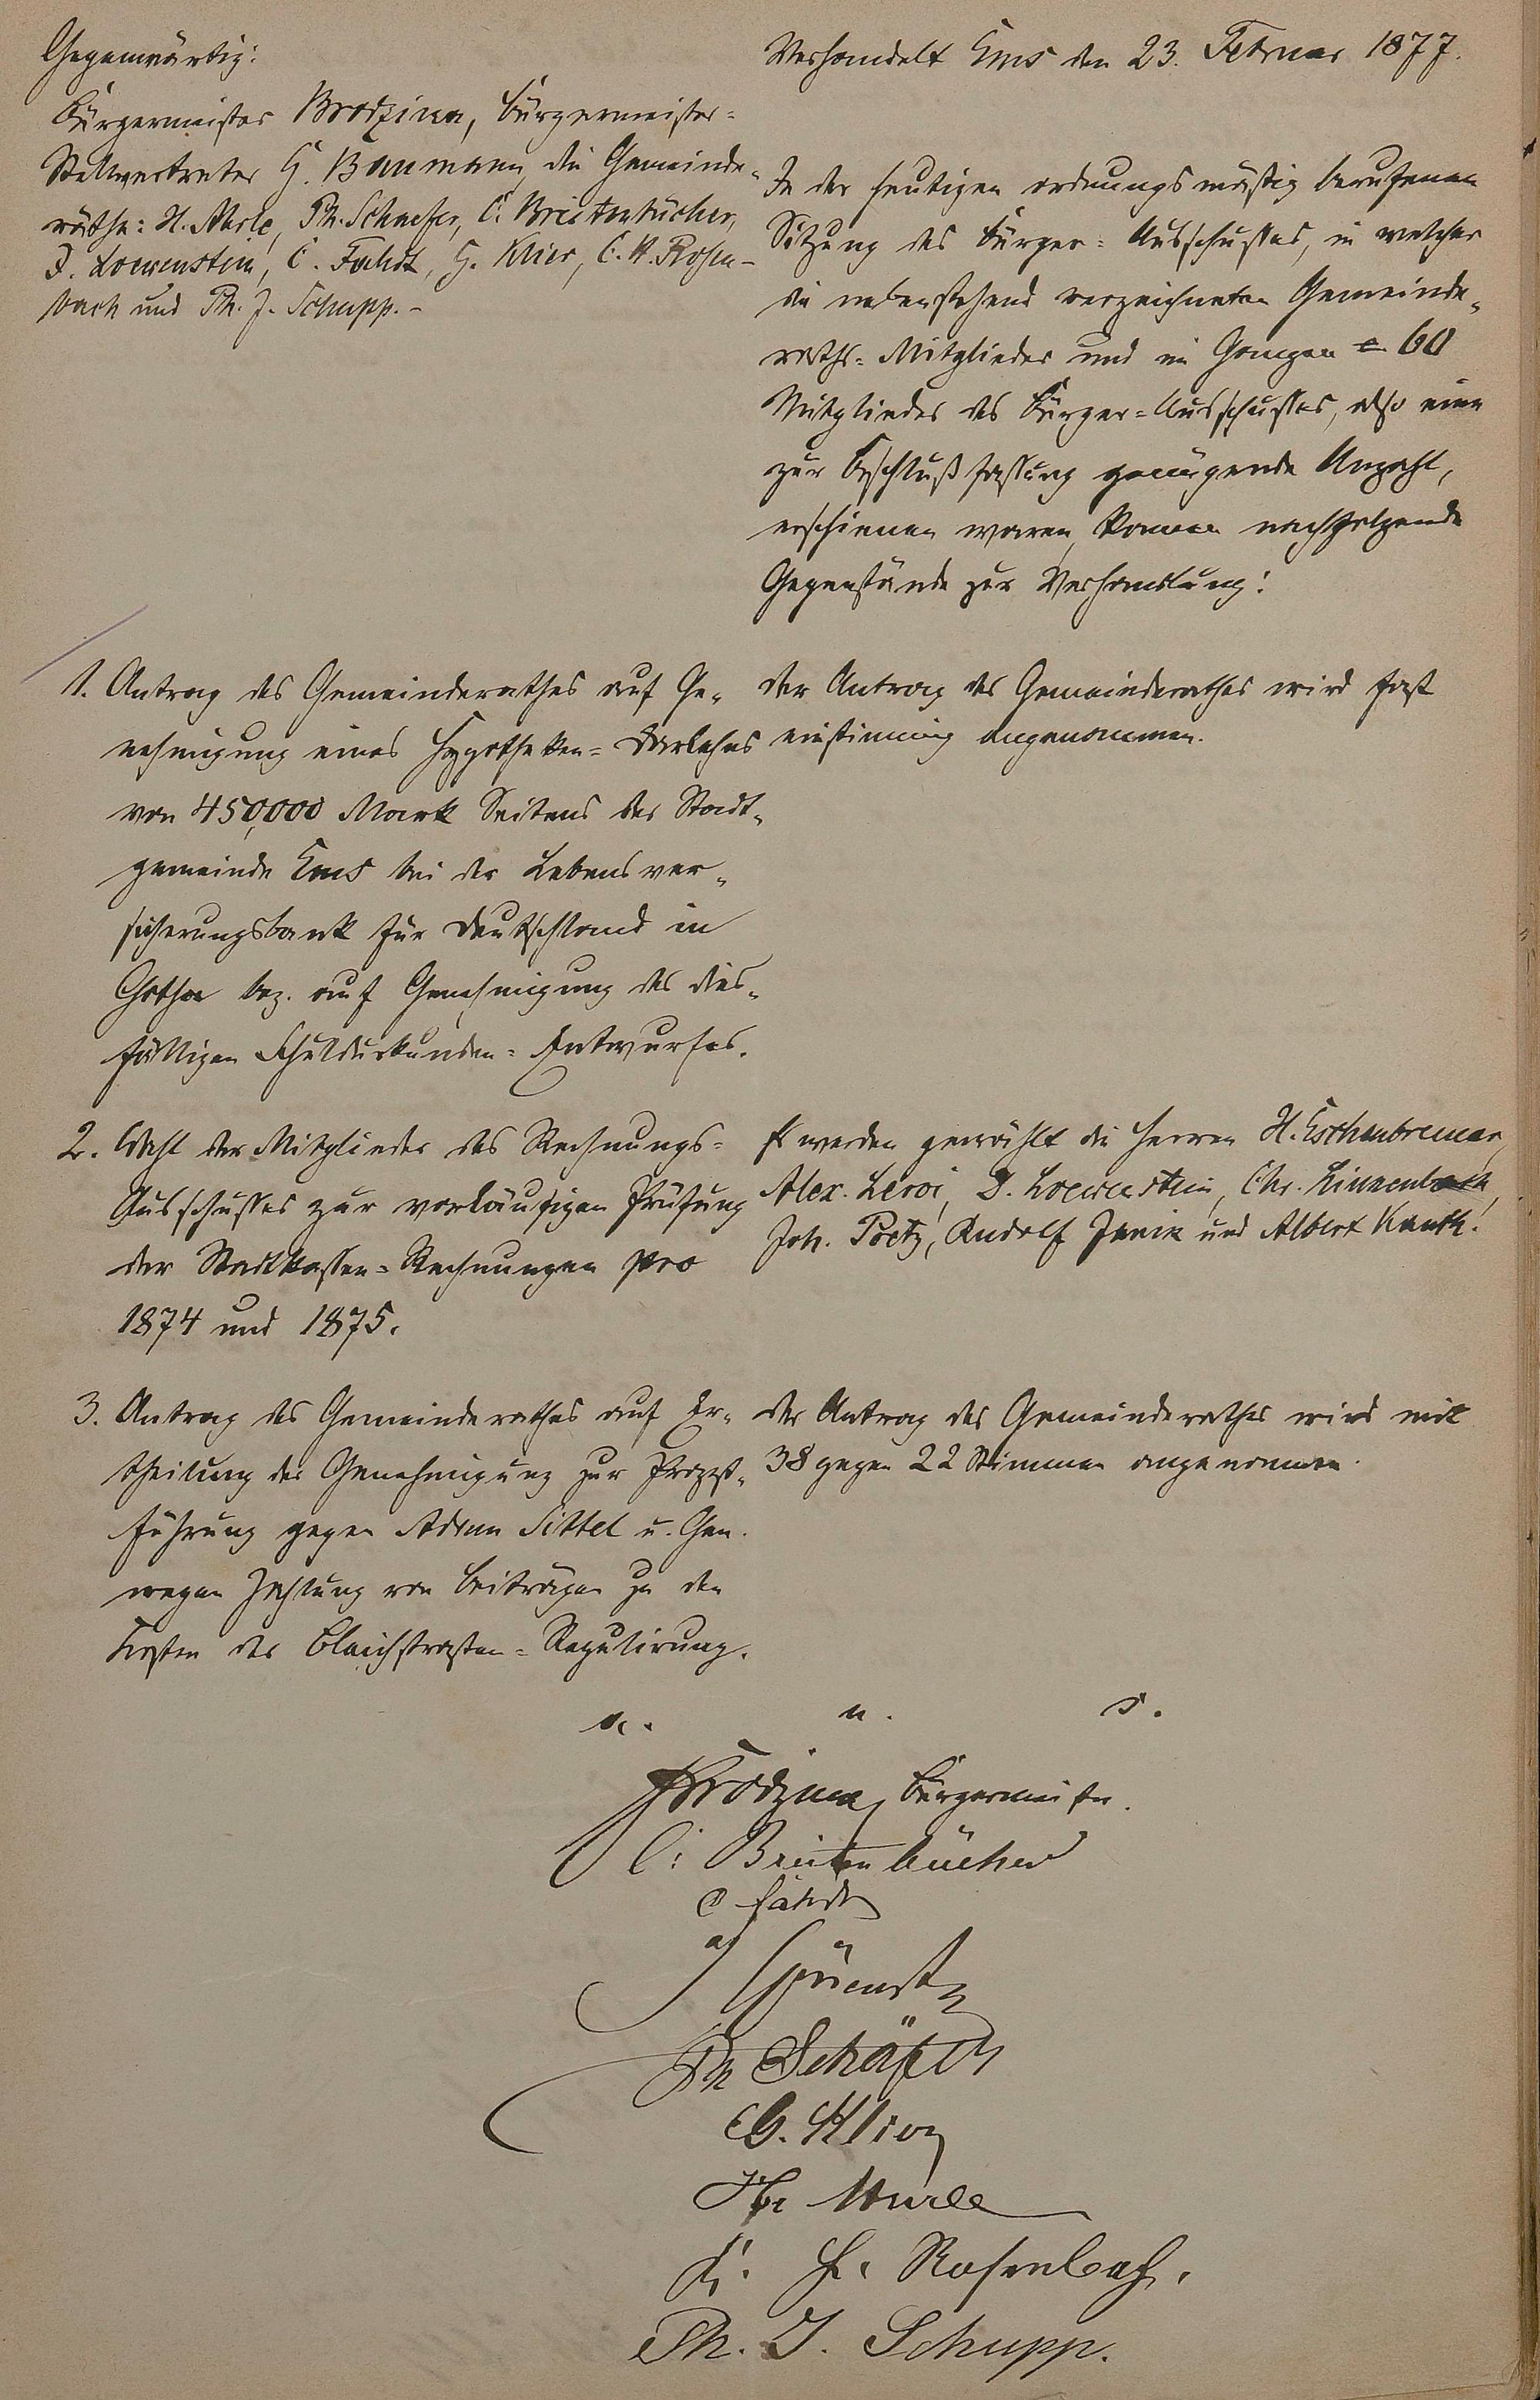 Gegenwärtig:
Bürgermeister Brodzina, Bürgermeister-
Stellvertreter G. Baumann, die Gemeinde-
räthe: H. Merle, Ph. Schaefer, C. Breitenbücher,
D. Loewenstein, C. Fahdt, G. Klier, C. H. Rosen-
bach und Ph. J. Schupp.-
Verhandelt Ems den 23. Februar 1877.
In der heutigen ordnungsmäßig berufenen
Sitzung des Bürger-Ausschusses, in welcher
die nebenstehend verzeichneten Gemeinde-
raths-Mitglieder und im Ganzen 60
Mitglieder des Bürger-Ausschusses, also eine
zur Beschlußfassung genügende Anzahl,
erschienen waren, kamen nachfolgende
Gegenstände zur Verhandlung:
1. Antrag des Gemeinderathes auf Ge-
nehmigung eines Hypotheken-Darlehns
von 450,000 Mark Seitens der Stadt-
gemeinde Ems bei der Lebensver-
sicherungsbank für Deutschland in
Gotha bez. auf Genehmigung des dies-
fälligen Schuldurkunden-Entwurfes.
Der Antrag des Gemeinderathes wird fast
einstimmig angenommen.
2. Wahl der Mitglieder des Rechnungs-
Ausschusses zur vorläufigen Prüfung
der Stadtkassen-Rechnungen pro
1874 und 1875.
Es werden gewählt die Herren H. Eschenbrenner,
Alex. Leroi, D. Loewenstein, Chr. Linnenbach,
Joh. Poetz, Rudolf und Albert Kauth.
3. Antrag des Gemeinderathes auf Er-
theilung der Genehmigung zur Prozeß-
führung gegen Adam Sittel u. Gen.
wegen Zahlung von Beiträgen zu den
Kosten der Bleichstraßen-Regulirung.
Der Antrag des Gemeinderathes wird mit
38 gegen 22 Stimmen angenommen.
a. u. s.
Brodzina, Bürgermeister.
C. Breitenbücher
C Fahdt
Ph Schäfer
G. Klier
H. Merle
C. H. Rosenbach.
Ph. J. Schupp.